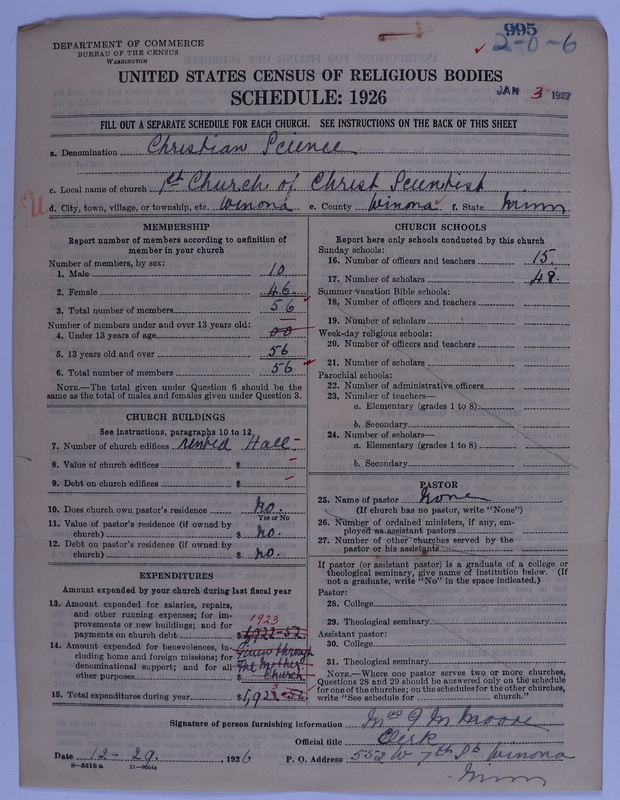 995
2-0-6
DEPARTMENT OF COMMERCE
BUREAU OF THE CENSUS
WASHINGTON
UNITED STATES CENSUS OF RELIGIOUS BODIES
SCHEDULE: 1926
JAN 3 1927
FILL OUT A SEPARATE SCHEDULE FOR EACH CHURCH. SEE INSTRUCTIONS ON THE BACK OF THIS SHEET
a. Denomination Christian Science
c. Local name of church 1st Church of Christ Scientist
d. City, town, village, or township, etc. Winona e. County Winona f. State Minn
MEMBERSHIP
Report number of members according to definition of
member in your church
Number of members, by sex:
1. Male 10
2. Female 46
3. Total number of members 56
Number of members under and over 13 years old:
4. Under 13 years of age 00
5. 13 years old and over 56
6. Total number of members 56
NOTE.—The total given under Question 6 should be the
same as the total of males and females given under Question 3.
CHURCH BUILDINGS
See instructions, paragraphs 10 to 12
7. Number of church edifices rented Hall
8. Value of church edifices $
9. Debt on church edifices $
10. Does church own pastor's residence No.
Yes or No
11. Value of pastor's residence (if owned by
church) $ No.
12. Debt on pastor's residence (if owned by
church) $ No.
EXPENDITURES
Amount expended by your church during last fiscal year
13. Amount expended for salaries, repairs,
and other running expenses; for im-
provements or new buildings; and for
payments on church debt $ 1922-52
1923
14. Amount expended for benevolences, in-
cluding home and foreign missions; for
denominational support; and for all
other purposes $
Given through
The Mother
Church
15. Total expenditures during year $
CHURCH SCHOOLS
Report here only schools conducted by this church
Sunday schools:
16. Number of officers and teachers 15.
17. Number of scholars 48
Summer vacation Bible schools:
18. Number of officers and teachers
19. Number of scholars
Week-day religious schools:
20. Number of officers and teachers
21. Number of scholars
Parochial schools:
22. Number of administrative officers
23. Number of teachers—
a. Elementary (grades 1 to 8)
b. Secondary
24. Number of scholars—
a. Elementary (grades 1 to 8)
b. Secondary
PASTOR
25. Name of pastor None
(If church has no pastor, write "None")
26. Number of ordained ministers, if any, em-
ployed as assistant pastors
27. Number of other churches served by the
pastor or his assistants
If pastor (or assistant pastor) is a graduate of a college or
theological seminary, give name of institution below. (If
not a graduate, write "No" in the space indicated.)
Pastor:
28. College
29. Theological seminary
Assistant pastor:
30. College
31. Theological seminary
NOTE.—Where one pastor serves two or more churches,
Questions 28 and 29 should be answered only on the schedule
for one of the churches; on the schedules for the other churches,
write "See schedule for church."
Signature of person furnishing information Mrs G M Moore
Official title Clerk
Date 12-29, 1926 P. O. Address 552 W 7th St Winona
Minn
8-5518a 11-9054a